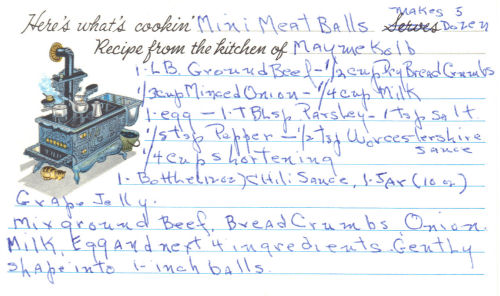 Here's what's cookin' Mini Meat Balls Serves Makes 5 Dozen
Recipe from the kitchen of Mayme Kolb
1-LB. Ground Beef - 1/2 cup Dry Bread Crumbs
1/3 cup Minced Onion - 1/4 cup Milk
1-egg - 1-TBLsp Parsley - 1 Tsp salt
1/8 tsp Pepper - 1/2 tsp Worcestershire sauce
1/4 cup shortening
1- Botthe (12 oz) CHili Sauce, 1-JAr (10 oz.)
Grape Jelly.
Mix ground Beef, Bread Crumbs, Onion.
Milk, Egg And next 4 ingredients. Gently
shape into 1-inch balls.